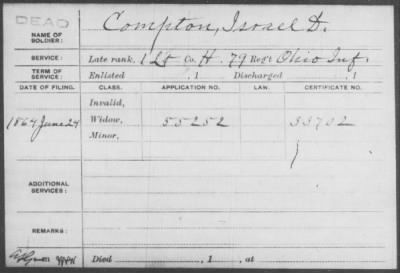 DEAD
NAME OF SOLDIER: Compton, Israel D.
SERVICE: Late rank, 1 Lt Co. H. 79 Reg't Ohio Inf.
TERM OF SERVICE: Enlisted , 1 Discharged , 1
DATE OF FILING. CLASS. APPLICATION NO. LAW. CERTIFICATE NO.
Invalid,
1864 June 24 Widow, 55252 33702
Minor,
ADDITIONAL SERVICES:
REMARKS:
Died , 1 , at